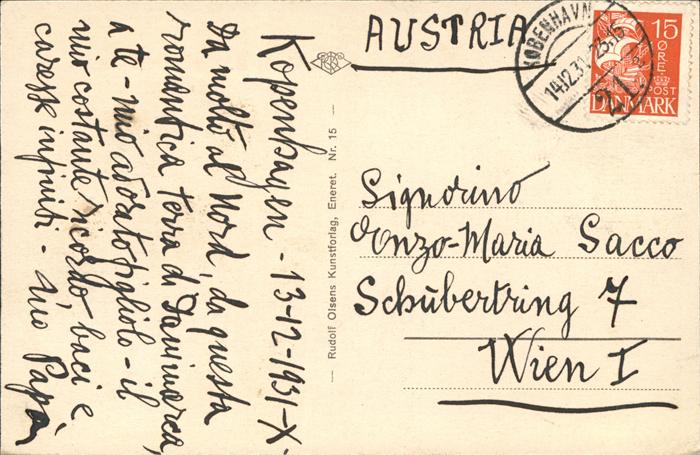 Kopenhagen - 13-12-1931-X
Da molto al Nord, da questa
romantica terra di Danimarca,
a te - mio adorato figliolo - il
mio costante ricordo, baci e
carezze infiniti - Tuo Papà
— Rudolf Olsens Kunstforlag, Eneret. Nr. 15 —
AUSTRIA
KØBENHAVN
14.12.31
15
ØRE
POST
DANMARK
Signorino
Enzo-Maria Sacco
Schubertring 7
Wien I